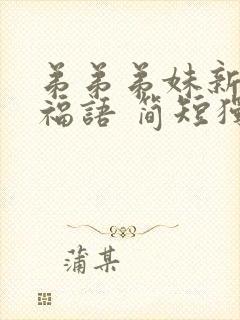 弟弟弟妹新
福語 简短独
蒲某